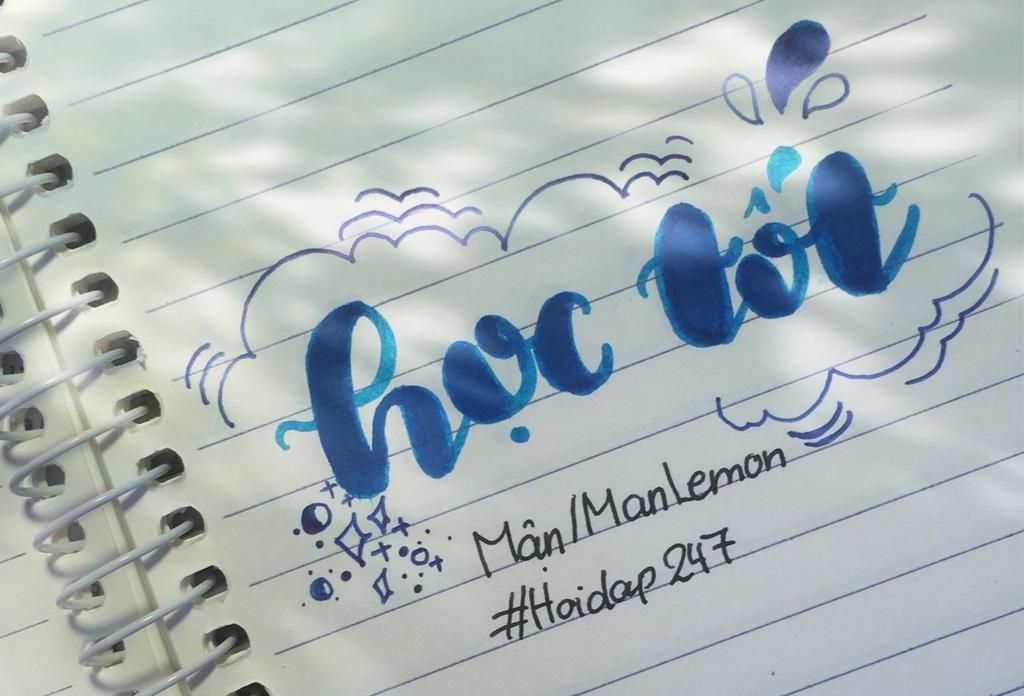 học tốt
Mận/ManLemon
#Hoidap247